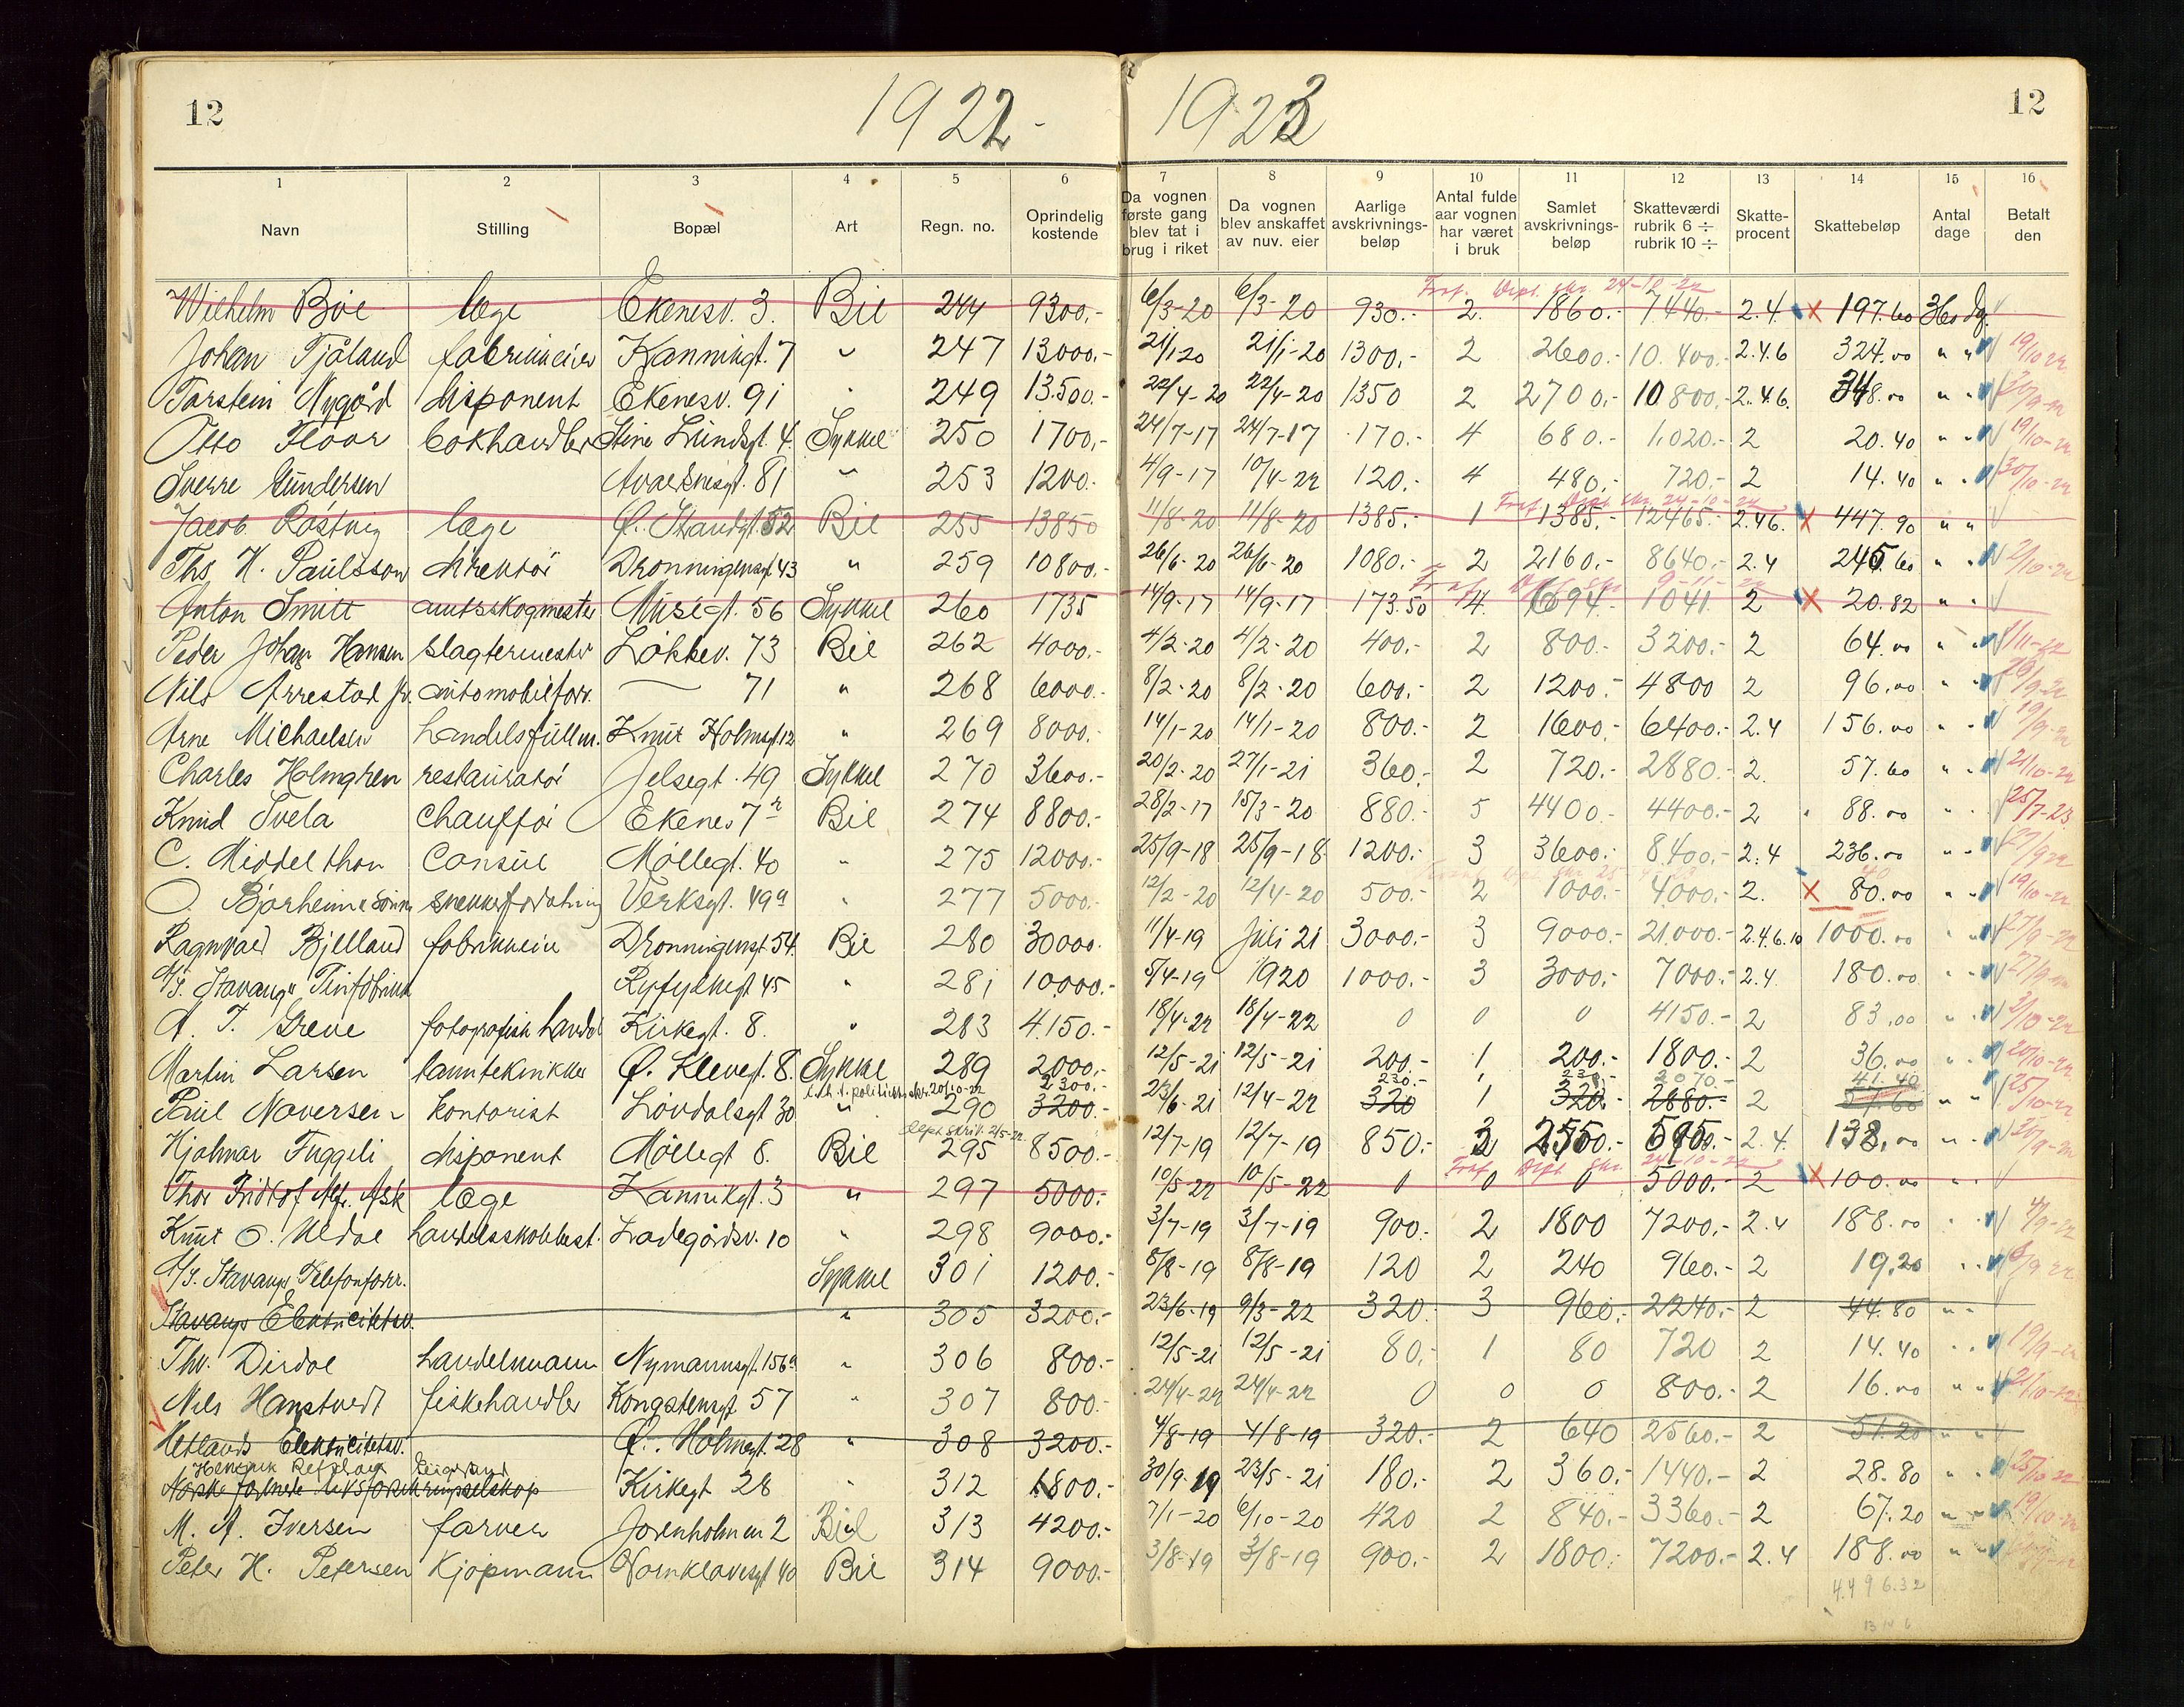 12 1922 - 1923 12
1 2 3 4 5 6 7 8 9 10 11 12 13 14 15 16
Navn Stilling Bopæl Art Regn. no. Oprindelig kostende Da vognen første gang blev tat i brug i riket Da vognen blev anskaffet av nuv. eier Aarlige avskrivnings-beløp Antal fulde aar vognen har været i bruk Samlet avskrivnings-beløp Skatteværdi rubrik 6 ÷ rubrik 10 ÷ Skatte-procent Skattebeløp Antal dage Betalt den
Wilhelm Bøe læge Ekenesv. 3. Bil 244 9300.- 6/3-20 6/3-20 930.- 2. 1860.- 7440.- 2.4. x 197.60 360 dg.
Johan Tjåland fabrikkeier Kannikgt. 7 " 247 13000.- 21/1 20 21/1-20 1300.- 2 2600.- 10.400.- 2.4.6 324.00 " " 19/10-22
Torstein Nygård disponent Ekenesv. 91 " 249 13.500.- 22/4-20 22/4-20 1350 2 2700.- 10800.- 2.4.6. 348.00 " "
Otto Floor bokhandler Stine Lundsgt. 4. Sykkel 250 1700.- 24/7-17 24/7-17 170.- 4 680.- 1.020.- 2 20.40 " " 19/10-22
Sverre Gundersen Avaldsnesgt. 81 " 253 1200.- 4/9-17 10/4-22 120.- 4 480.- 720.- 2 14.40 " " 30/10-22
Jacob Røstvig læge Ø. Strandgt. 52 Bil 255 13850 11/8-20 11/8-20 1385.- 1 1385.- 12465.- 2.46. x 447.90 " "
Ths. H. Paulsson direktør Dronningensgt 43 " 259 10800.- 26/6-20 26/6-20 1080.- 2 2160.- 8640.- 2.4 245.60 " " 2/10-22
Anton Smitt amtsskogmester Musegt. 56 Sykkel 260 1735 14/9-17 14/9-17 173.50 4. 694.- 1041. 2 x 20.82 " "
Peder Johan Hansen slagtermester Løkkev. 73 Bil 262 4000.- 4/2-20 4/2-20 400.- 2 800.- 3200.- 2 64.00 " "
Nils Arrestad jr. automobilforr. — 71 " 268 6000.- 8/2-20 8/2-20 600.- 2 1200.- 4800 2 96.00 " "
Arne Michaelsen handelsfullm. Knut Holmsgt. 12 " 269 8000.- 14/1-20 14/1-20 800.- 2 1600.- 6400.- 2.4 156.00 " " 19/9-22
Charles Holmgren restauratør Jelsegt. 49 Sykkel 270 3600.- 20/2-20 27/1-21 360.- 2 720.- 2880.- 2. 57.60 " " 21/10-22
Knud Tveta chauffør Ekenes 7 Bil 274 8800.- 28/2-17 15/3-20 880.- 5 4400.- 4400.- 2 88.00 " " 25/7-23
C. Middelthon consul Møllegt. 40 " 275 12000.- 25/9-18 25/9-18 1200.- 3 3600.- 8.400.- 2.4 236.00 " " 27/9 22
O. Bjørheim & Sønn snekkerforretning Verksgt. 49a " 277 5000.- 12/2-20 12/4-20 500.- 2 1000.- 4000.- 2. x 80.00 " " 19/10-22
Ragnvald Bjelland fabrikkeier Dronningensgt 54. Bil 280 30000. 11/4-19 Juli 21 3000.- 3 9000.- 21000.- 2.4.6.10 1000.00 " " 27/9-22
A/S. Stavang" Tinfabrikk Ryfylkegt 45 " 281 10.000.- 5/4-19 1920 1000.- 3 3000.- 7000.- 2.4. 180.00 " " 27/9-22
A. T. Greve fotografisk handel Kirkegt. 8. " 283 4.150.- 18/4-22 18/4-22 0 0 0 4150.- 2 83.00 " " 3/10-22
Martin Larsen tanntekniker Ø. Klevegt. 8. Sykkel 289 2000.- 12/5-21 12/5-21 200.- 1 200.- 1800.- 2 36.00 " " 20/10-22
2300.- 230.- 230.- 2070.- 41.40
Paul Noversen kontorist Løvdalsgt 30 " 290 3200.- 23/6-21 12/4-22 320 1 320.- 2880.- 2 57.60 " " 25/10-22
Hjalmar Fuggeli disponent Møllegt 8. Bil 295 8500.- 12/7-19 12/7-19 850.- 3 2550.- 5950.- 2.4. 138.00 " "
Thor Fridtjof Alf. Ask læge Kannikgt. 3 " 297 5000.- 10/5-22 10/5-22 0 0 0 5000.- 2 x 100.00 " "
Knut O. Meldal handelsskolebest. Ladegårdsv. 10 " 298 9000.- 3/7-19 3/7-19 900.- 2 1800 7200.- 2.4 188.00 " "
A/S. Stavang. Telefonforr. Sykkel 301 1200.- 8/8-19 8/8-19 120 2 240 960.- 2 19.20 " "
Stavangs Elektricitetsv. " 305 3200.- 23/6-19 9/3-22 320. 3 960.- 2240.- 2 44.80 " "
Thv. Dirdal handelsmann Nymannsgt. 156a " 306 800.- 12/5-21 12/5-21 80.- 1 80 720 2 14.40 " " 19/9-22
Nils Hanstvedt fiskehandler Kongstensgt 57 " 307 800.- 24/4-22 24/4-22 0 0 0 800.- 2 16.00 " "
Hetlands Elektricitetsv. Ø. Holmegt. 28 " 308 3200.- 4/8-19 4/8-19 320.- 2 640 2560.- 2 51.20 " "
Henrik Refslag
Norske forenede livsforsikringsselskap Kirkegt 28 " 312 1800.- 30/9-19 23/5-21 180.- 2 360.- 1440.- 2 28.80 " " 25/10 22
M. A. Iversen farver Jorenholmen 2 Bil 313 4200.- 7/1-20 6/10-20 420 2 840.- 3360.- 2 67.20 " " 19/10-22
Peter H. Petersen Kjøpmann Harnklavesgt 40 Bil 314 9000.- 3/8-19 3/8-19 900.- 2 1800.- 7200.- 2.4 188.00 " "
4.496.32